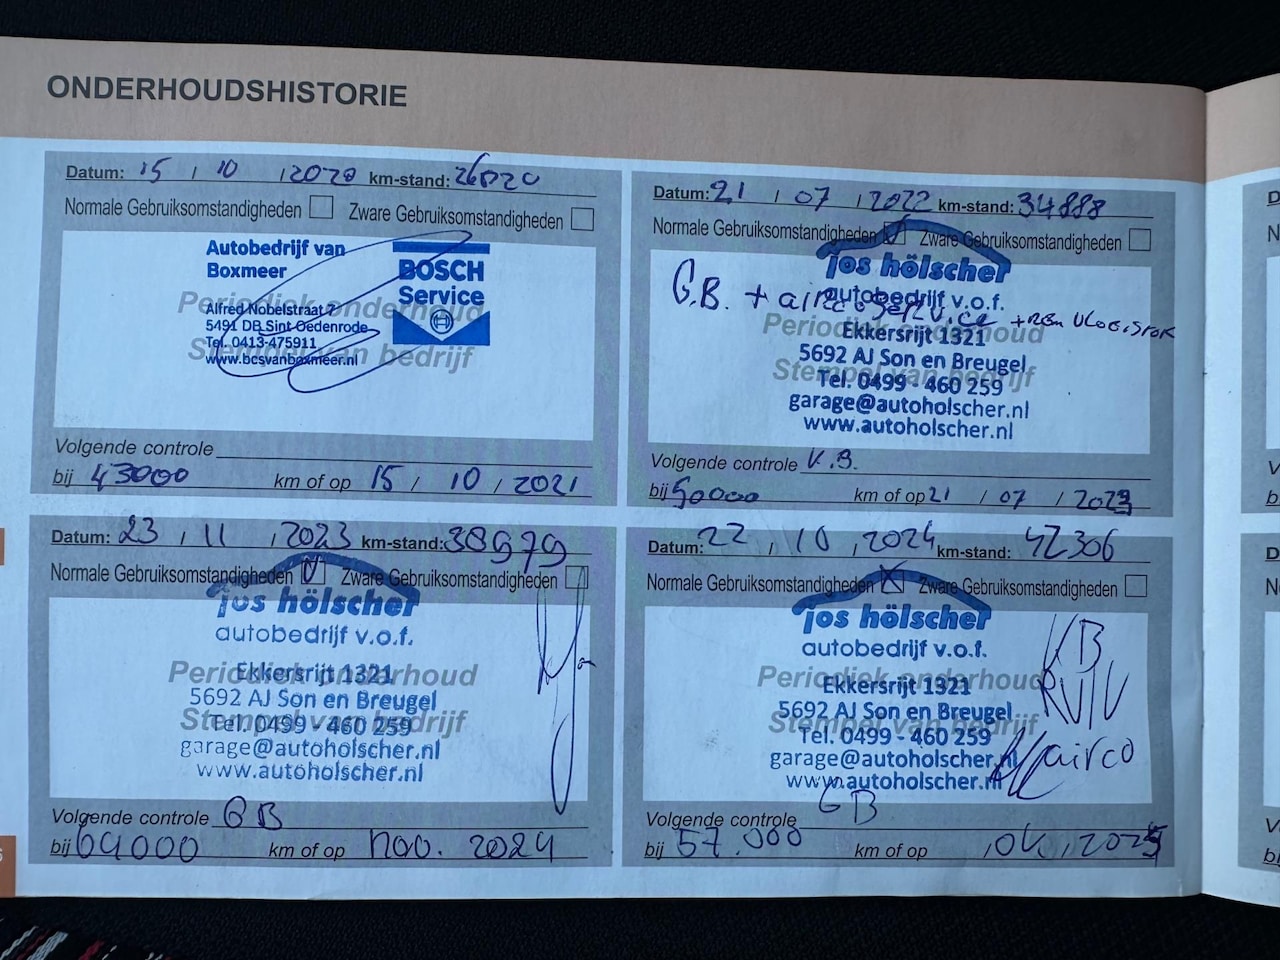 ONDERHOUDSHISTORIE
Datum: 15 / 10 / 2020 km-stand: 26020
Normale Gebruiksomstandigheden Zware Gebruiksomstandigheden
Autobedrijf van
Boxmeer
BOSCH
Service
Periodiek onderhoud
Alfred Nobelstraat 7
5491 DB Sint Oedenrode
Tel. 0413-475911
Stempel van bedrijf
www.bcsvanboxmeer.nl
Volgende controle
bij 43000 km of op 15 / 10 / 2021
Datum: 21 / 07 / 2022 km-stand: 34888
Normale Gebruiksomstandigheden Zware Gebruiksomstandigheden
jos hölscher
autobedrijf v.o.f.
G.B. + airco service + rem vloeistof
Periodiek onderhoud
Ekkersrijt 1321
5692 AJ Son en Breugel
Stempel van bedrijf
Tel. 0499 - 460 259
garage@autoholscher.nl
www.autoholscher.nl
Volgende controle K.B.
bij 50000 km of op 21 / 07 / 2023
Datum: 23 / 11 / 2023 km-stand: 38979
Normale Gebruiksomstandigheden Zware Gebruiksomstandigheden
jos hölscher
autobedrijf v.o.f.
Periodiek onderhoud
Ekkersrijt 1321
5692 AJ Son en Breugel
Stempel van bedrijf
Tel. 0499 - 460 259
garage@autoholscher.nl
www.autoholscher.nl
Volgende controle GB
bij 64000 km of op nov. 2024
Datum: 22 / 10 / 2024 km-stand: 42306
Normale Gebruiksomstandigheden Zware Gebruiksomstandigheden
jos hölscher
autobedrijf v.o.f.
KB
Periodiek onderhoud
Ekkersrijt 1321
RVIV
5692 AJ Son en Breugel
Stempel van bedrijf
Tel. 0499 - 460 259
garage@autoholscher.nl
airco
www.autoholscher.nl
Volgende controle GB
bij 57.000 km of op / okt / 2025